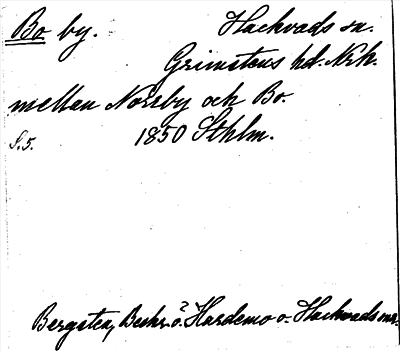 Bo by. Hackvads sn.
Grimstens hd. Nrk.
mellan Norsby och Bo.
S. 5. 1850 Sthlm.
Bergsten, Beskr. ö. Hardemo o. Hackvads snr.